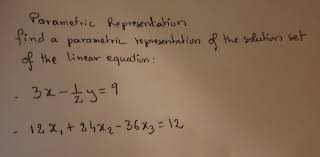 Parametric Representation
find a parametric representation of the solution set
of the linear equation:
. 3x - 1/2 y = 9
. 12x₁ + 24x₂ - 36x₃ = 12